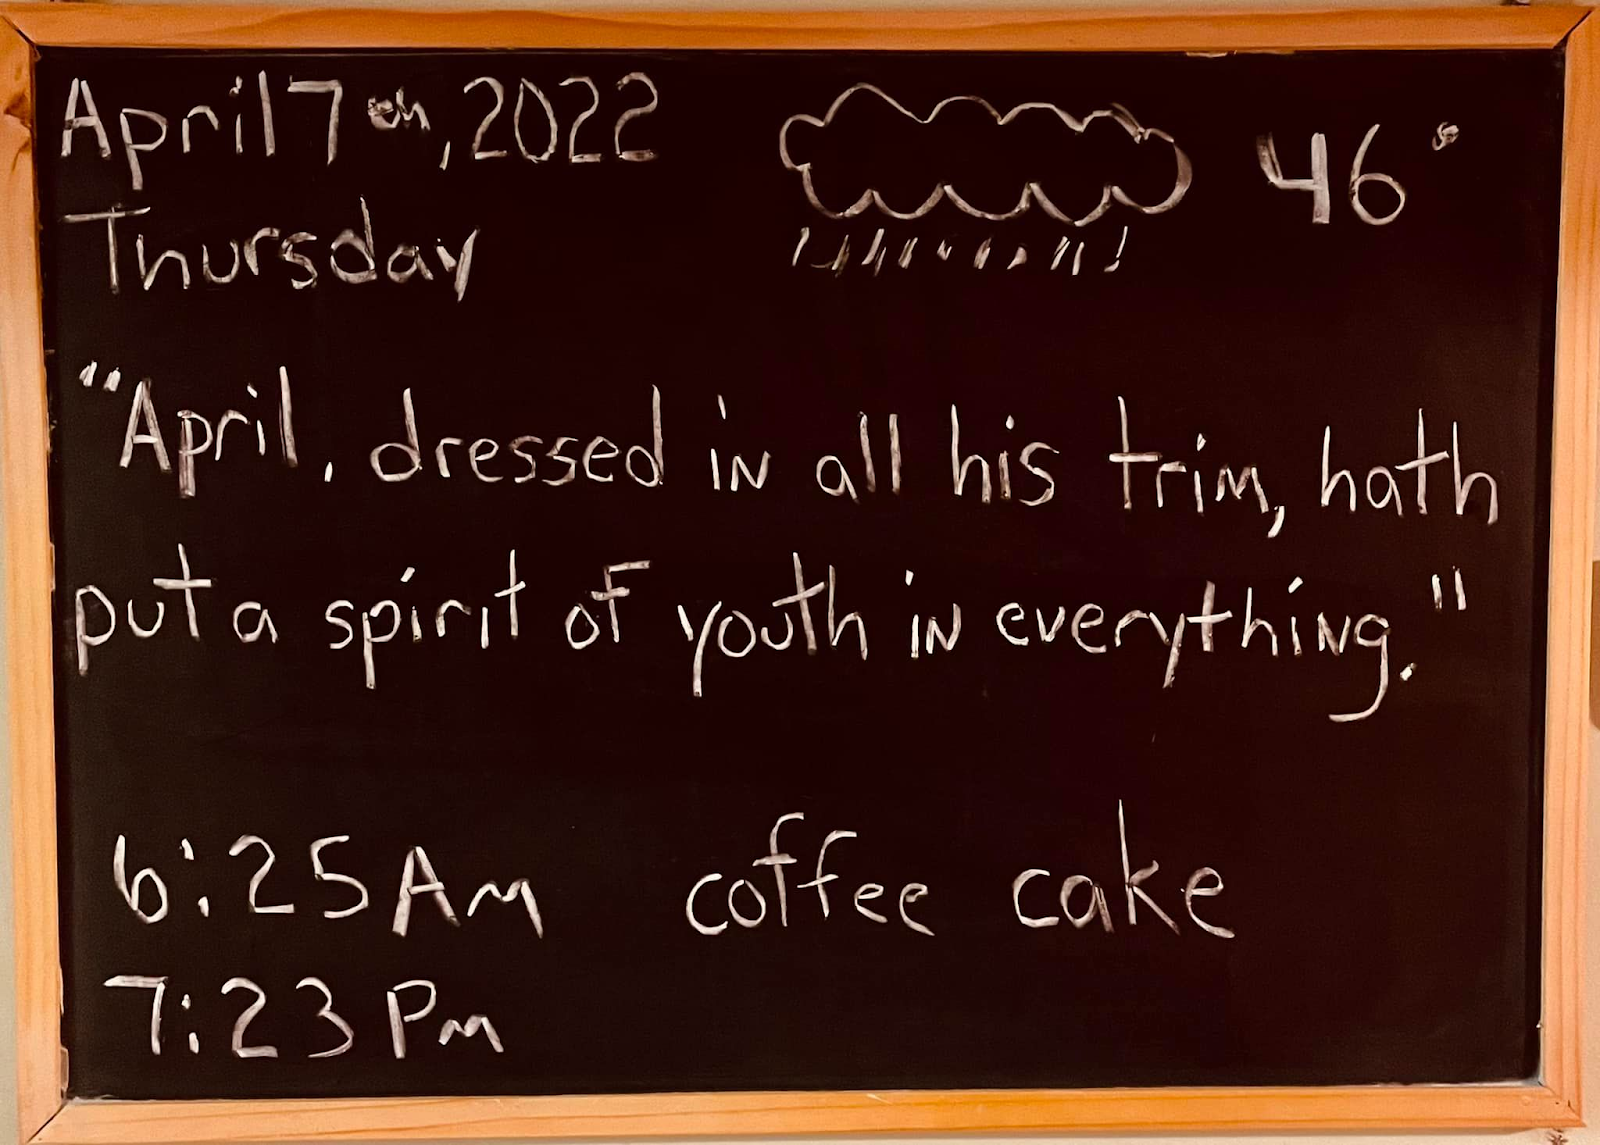 April 7th, 2022 46°
Thursday
"April, dressed in all his trim, hath
put a spirit of youth in everything."
6:25 Am coffee cake
7:23 Pm